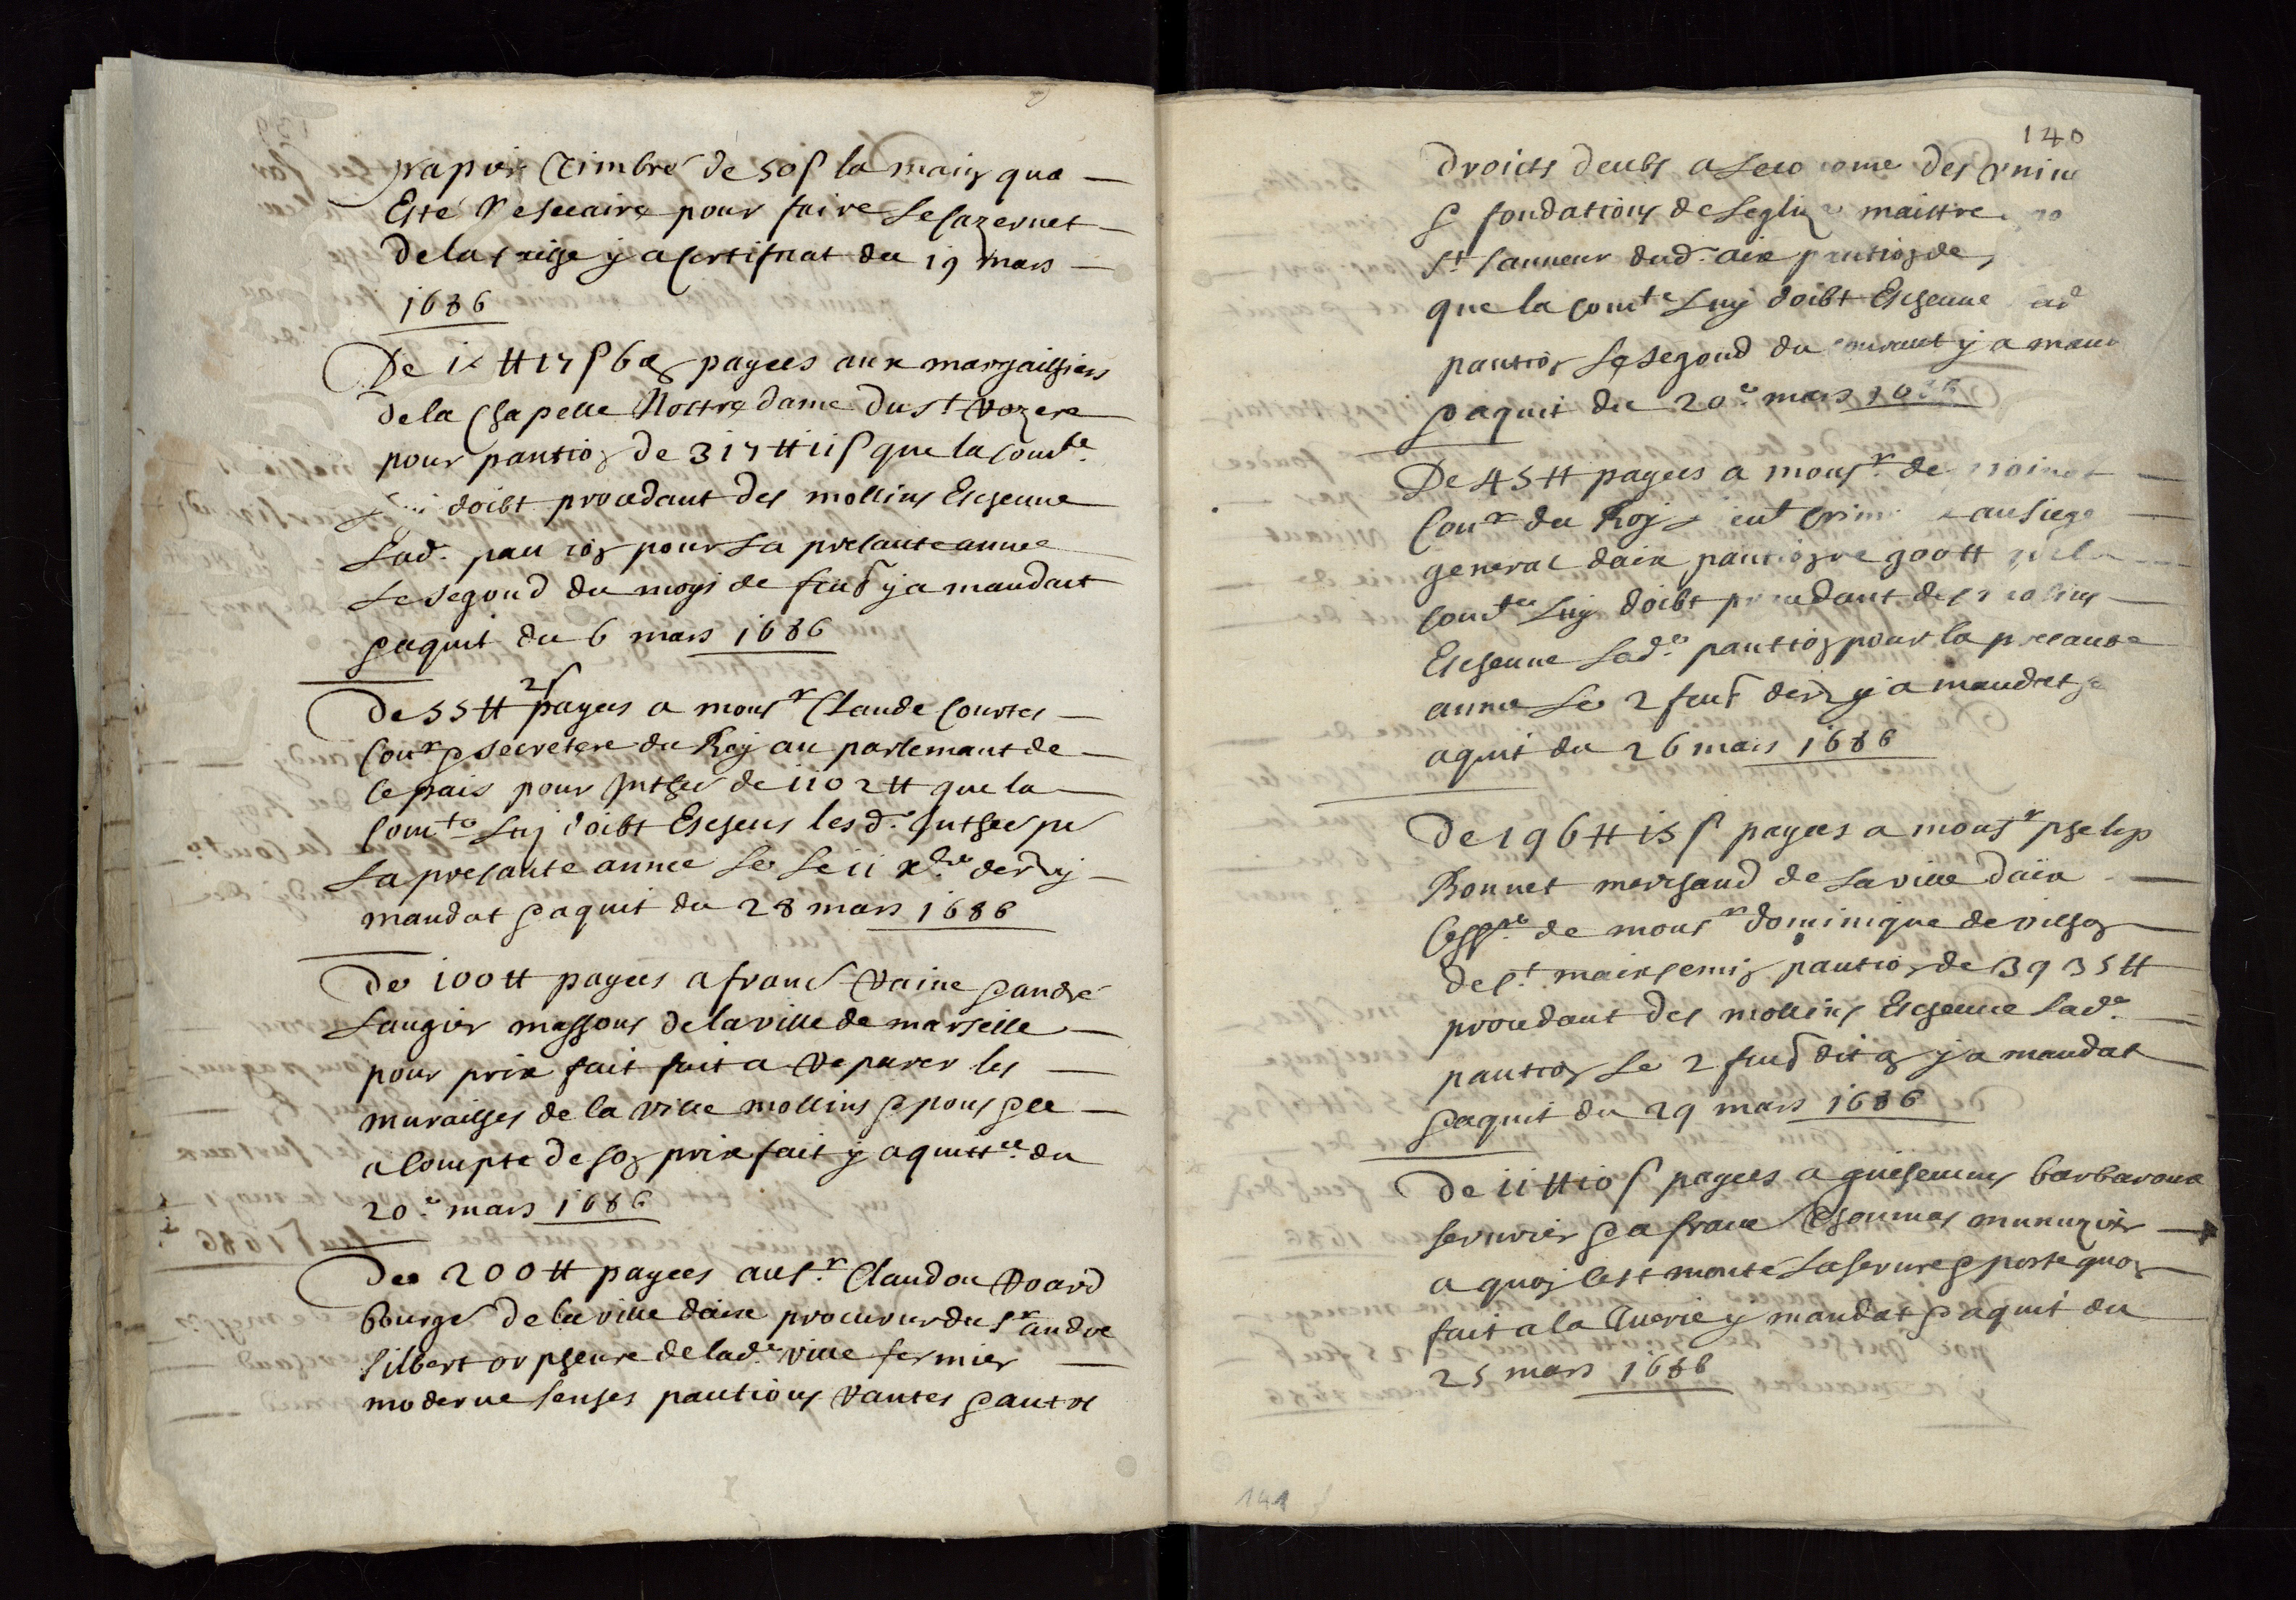 papier timbré de 50 s la main qua
Esté Nesseaire pour faire le Cazernet
de la taille y a certificat du 19 mars
1686
De tt 17 s 6 d payees aux margailliers
de la Chapelle Nostre dame du st Rozere
pour pantion de 317 tt 11 s que la Comte
doibt procedant des mollins Escheue
lad. pantion pour la presante annee
le segond du moys de feubr y a mandact
& aquit du 6 mars 1686
De 55 tt 2 s payees a monsr Claude Courtes
Conr & secretere du Roy au parlemant de
ce pais pour Inthes de 1102 tt que la
Comte luy doibt Escheus lesd. Inthes pr
la presante annee le le 11 xbre der y
mandat & aquit du 28 mars 1686
De 100 tt payees a frans Vaine & andré
Laugier massons de la ville de marseille
pour prix fait fait a Reparer les
murailhes de la ville mollins & pons & ce
a Compte de son prix fait y a quittce du
20e mars 1686
De 200 tt payees au sr Claudou Voard
bourgs de la ville daix procureur du sr andre
silbert orpheure de lade ville fermier
moderne senses pantions Rantes & autres
140
droicts deubs a
& fondations de leglize maittre
st sauueur dud. aix pantion de
que la Comte luy doibt Escheue lad
pantion le segond du courant y a mand
& aquit du 20e mars 1686
De 45 tt payees a monsr de
Conr du Roy au siege
general daix pantion de 900 tt que la
Comte luy doibt procedant des mollins
Escheue lade pantion pour la presante
annee le 2 feubr der y a mandat &
aquit du 26 mars 1686
De 196 tt 15 s payees a monsr phelip
Bonnet merchand de la ville daix
Cessre de monsr dominique de
de st pantion de 3935 tt
procedant des mollins Escheue lade
pantion le 2 feubr dit an y a mandat
& aquit du 29 mars 1686
De 11 tt 10 s payees a guiheumes barbaroux
serurier & a frans Thoumas munuzier
a quoy cest monte la serure & porte quon
fait a la Cuerie y mandat & aquit du
25 mars 1686
141